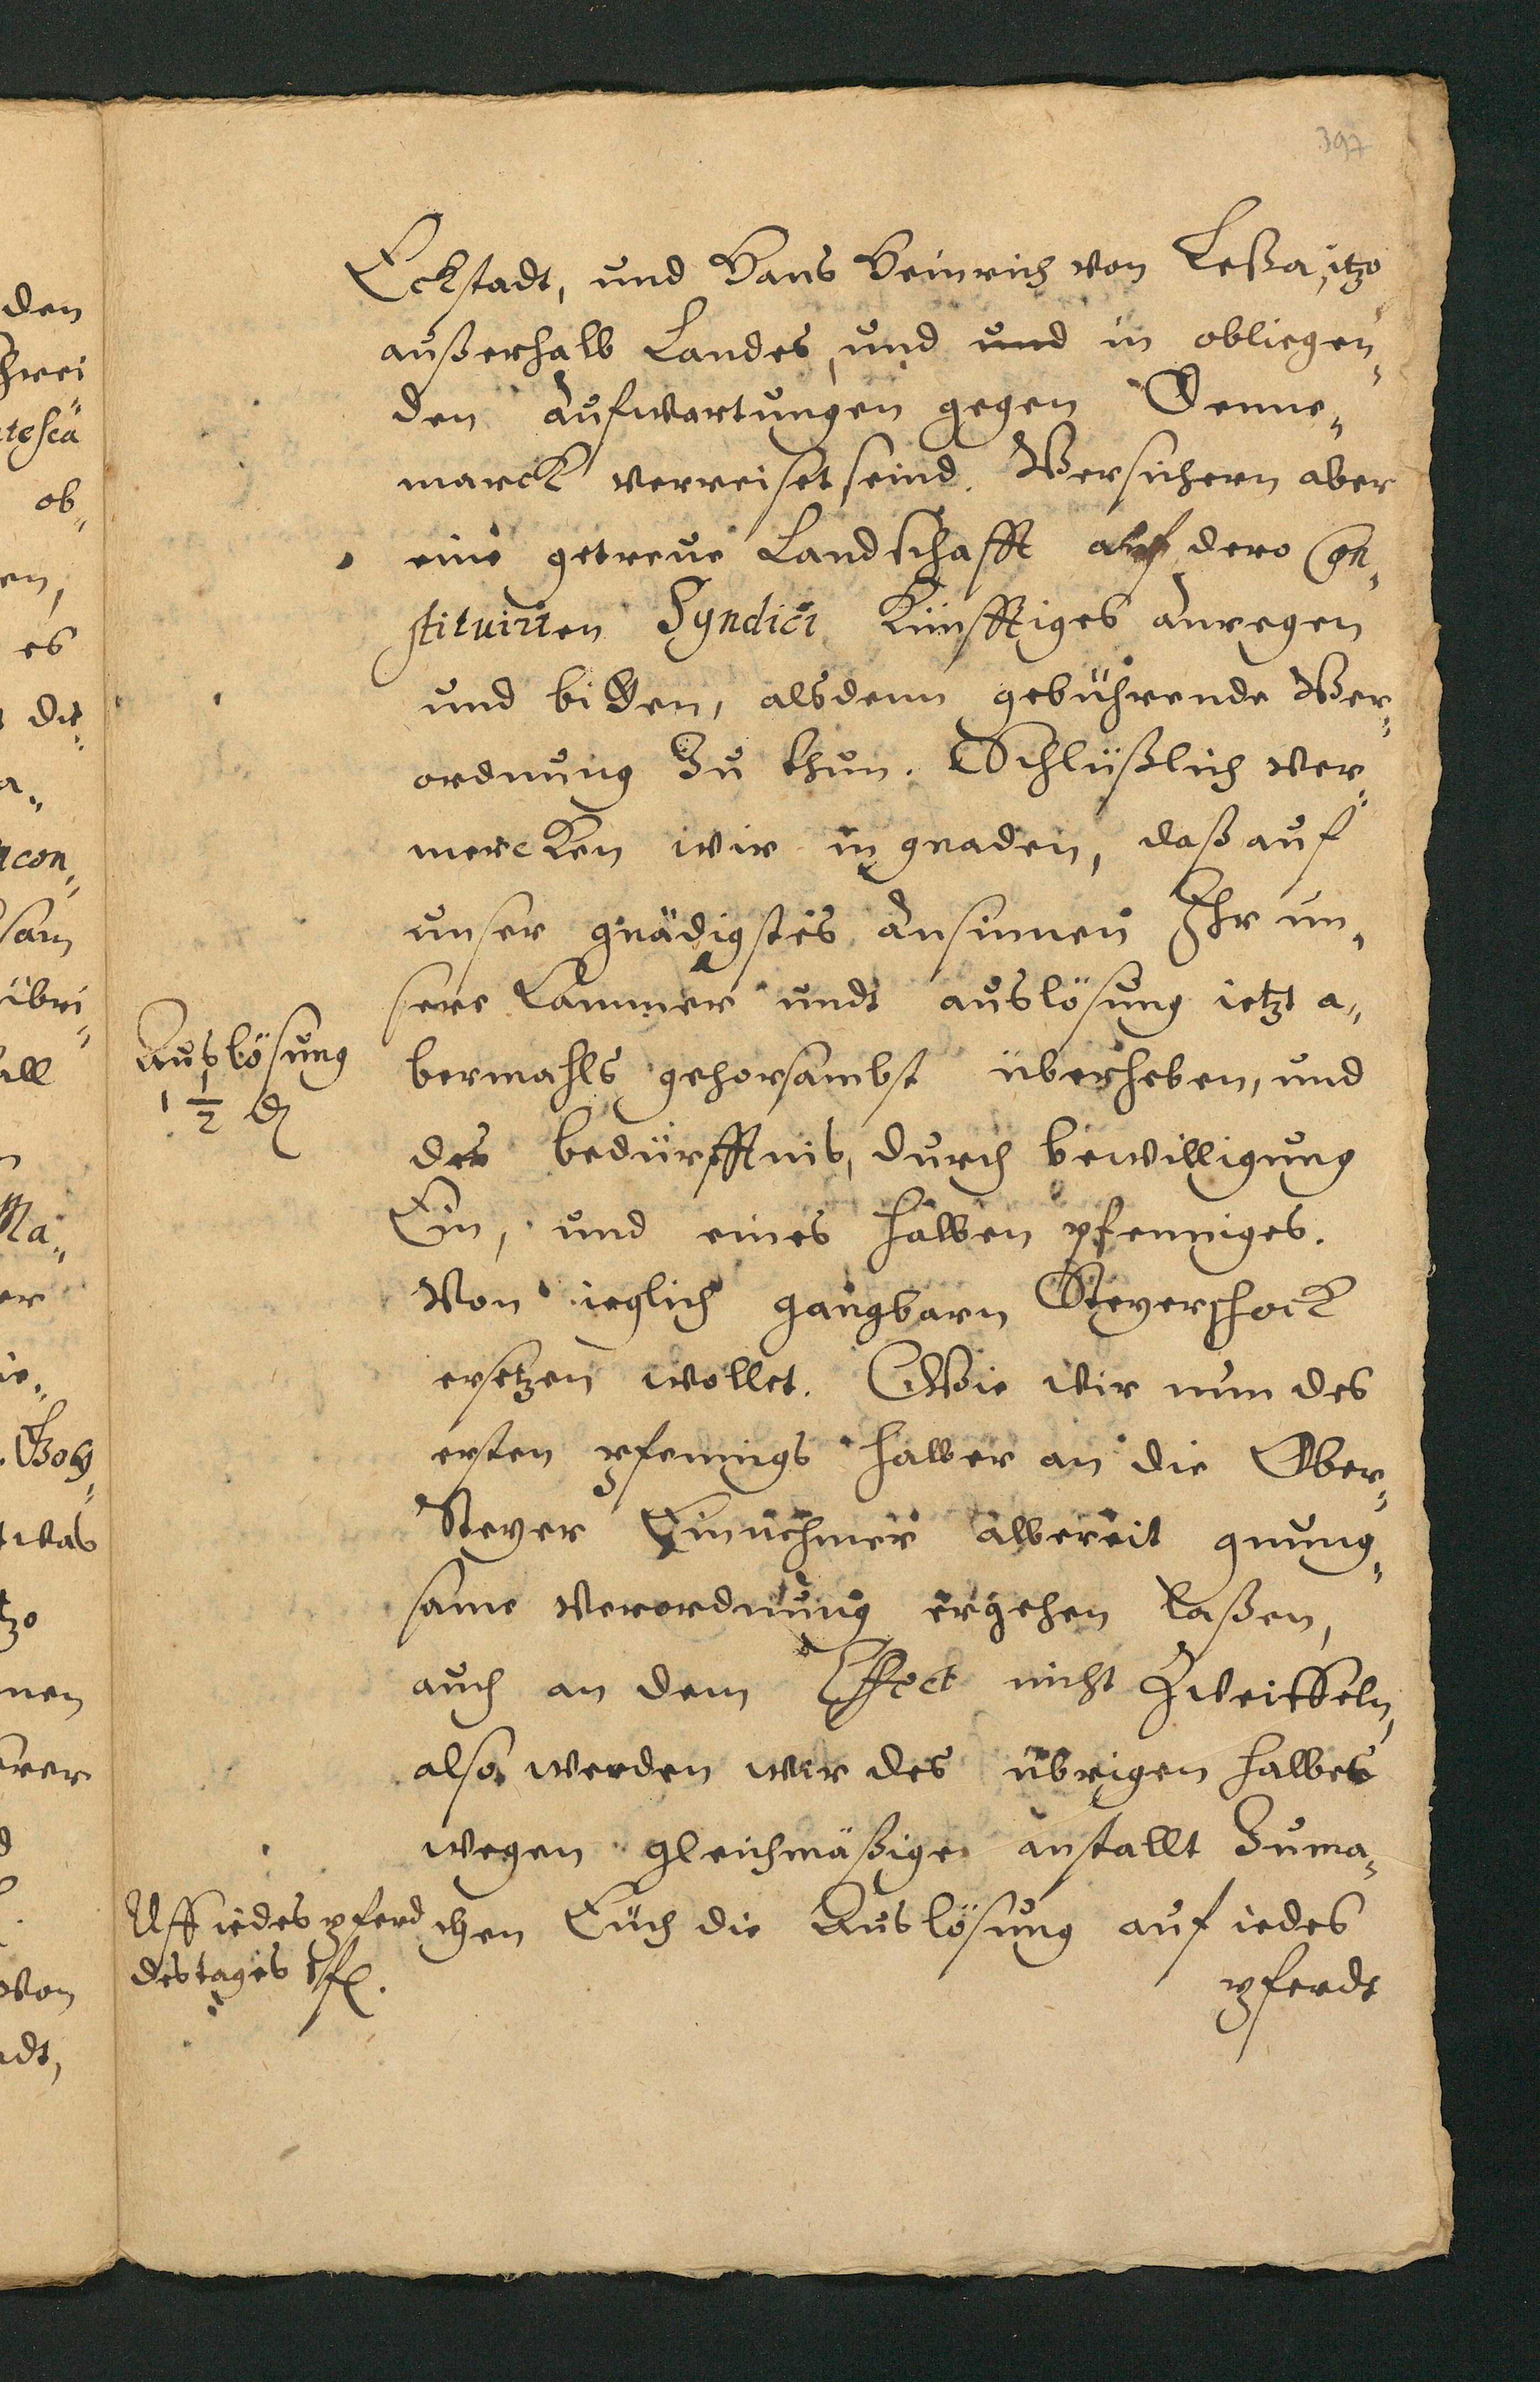 397
Eckstadt, und Hans Heinrich von Leßa, itzo
außerhalb Landes, und und in obliegen„
den Aufwartungen gegen Denne„
marck verreiset seind. Versichern aber
eine getreue Landschafft auf dero con„
stituirten Syndici Künfftiges anregen
und bitten, alsdenn gebührende Ver„
ordnung Zu thun. Schlüßlich ver„
mercken wir in gnaden, daß auf
unser gnädigstes Ansinnen Ihr un„
sere Cammer undt auslösung ietzt a„
bermahls gehorsambst überheben, und
des bedürffnis, durch bewilligung
Ein, und eines halben pfenniges.
Von ieglich gangbarn Steyerschock
ersetzen wollet. Wie wir nun des
ersten pfennigs halber an die Ober„
Steyer Einnehmer albereit gnung„
same Verordnung ergehen laßen,
auch an dem Effect nicht Zweiffeln,
also werden wir des übrigen halben
wegen gleichmäßige anstallt Zuma„
chen Euch die Auslösung auf iedes
pferdt
Auslösung
1 1/2 ₰
Uff iedes pferd
des tages 1 fl.
den
ob„
en,
es
die„
a„
acon„
sam
übri„
all
Ma„
er
ie„
was
tzo
nen
erer
von
adt,